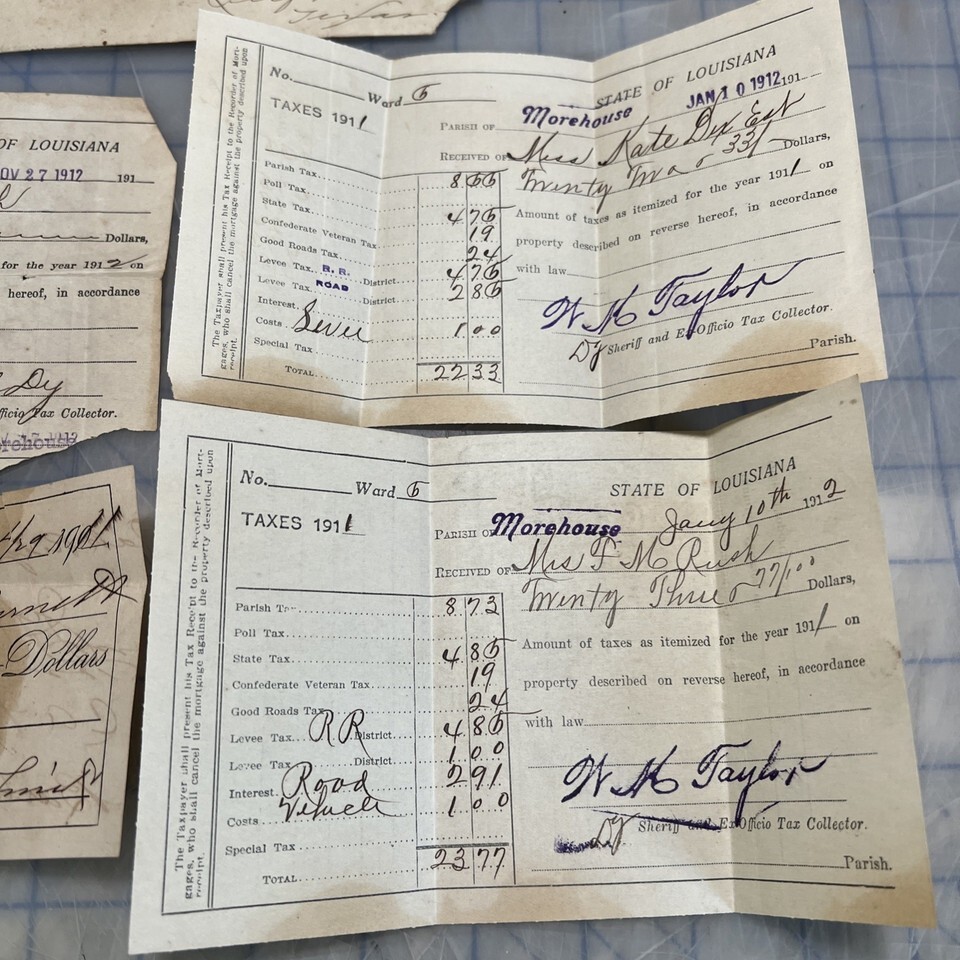 OF LOUISIANA
NOV 27 1912 191
Dollars,
for the year 1912 on
hereof, in accordance
Dy
fficio Tax Collector.
Dollars
The Taxpayer shall present his Tax Receipt to the Recorder of Mort-
gages, who shall cancel the mortgage against the property described upon
receipt.
No. Ward 5
TAXES 1911
STATE OF LOUISIANA
JAN 10 1912 191
PARISH OF Morehouse
RECEIVED OF Miss Kate Dix Est
Twenty Two & 33/ Dollars,
Amount of taxes as itemized for the year 1911 on
property described on reverse hereof, in accordance
with law
W M Taylor
Dy Sheriff and Ex-Officio Tax Collector.
Parish.
Parish Tax 8.55
Poll Tax
State Tax 4 75
Confederate Veteran Tax 19
Good Roads Tax 24
Levee Tax R.R. District 4 75
Levee Tax ROAD District 2 85
Interest
Costs Sever 1.00
Special Tax
TOTAL 22 33
The Taxpayer shall present his Tax Receipt to the Recorder of Mort-
gages, who shall cancel the mortgage against the property described upon
receipt.
No. Ward 5
TAXES 1911
STATE OF LOUISIANA
Jany 10th 1912
PARISH OF Morehouse
RECEIVED OF Mrs F M Rush
Twenty Three & 77/100 Dollars,
Amount of taxes as itemized for the year 1911 on
property described on reverse hereof, in accordance
with law
W M Taylor
Dy Sheriff and Ex-Officio Tax Collector.
Parish.
Parish Tax 8.73
Poll Tax
State Tax 4.85
Confederate Veteran Tax 19
Good Roads Tax 24
Levee Tax R R District 4.85
Levee Tax District 1 00
Interest Road 2 91
Costs Vehicle 1.00
Special Tax
TOTAL 23 77